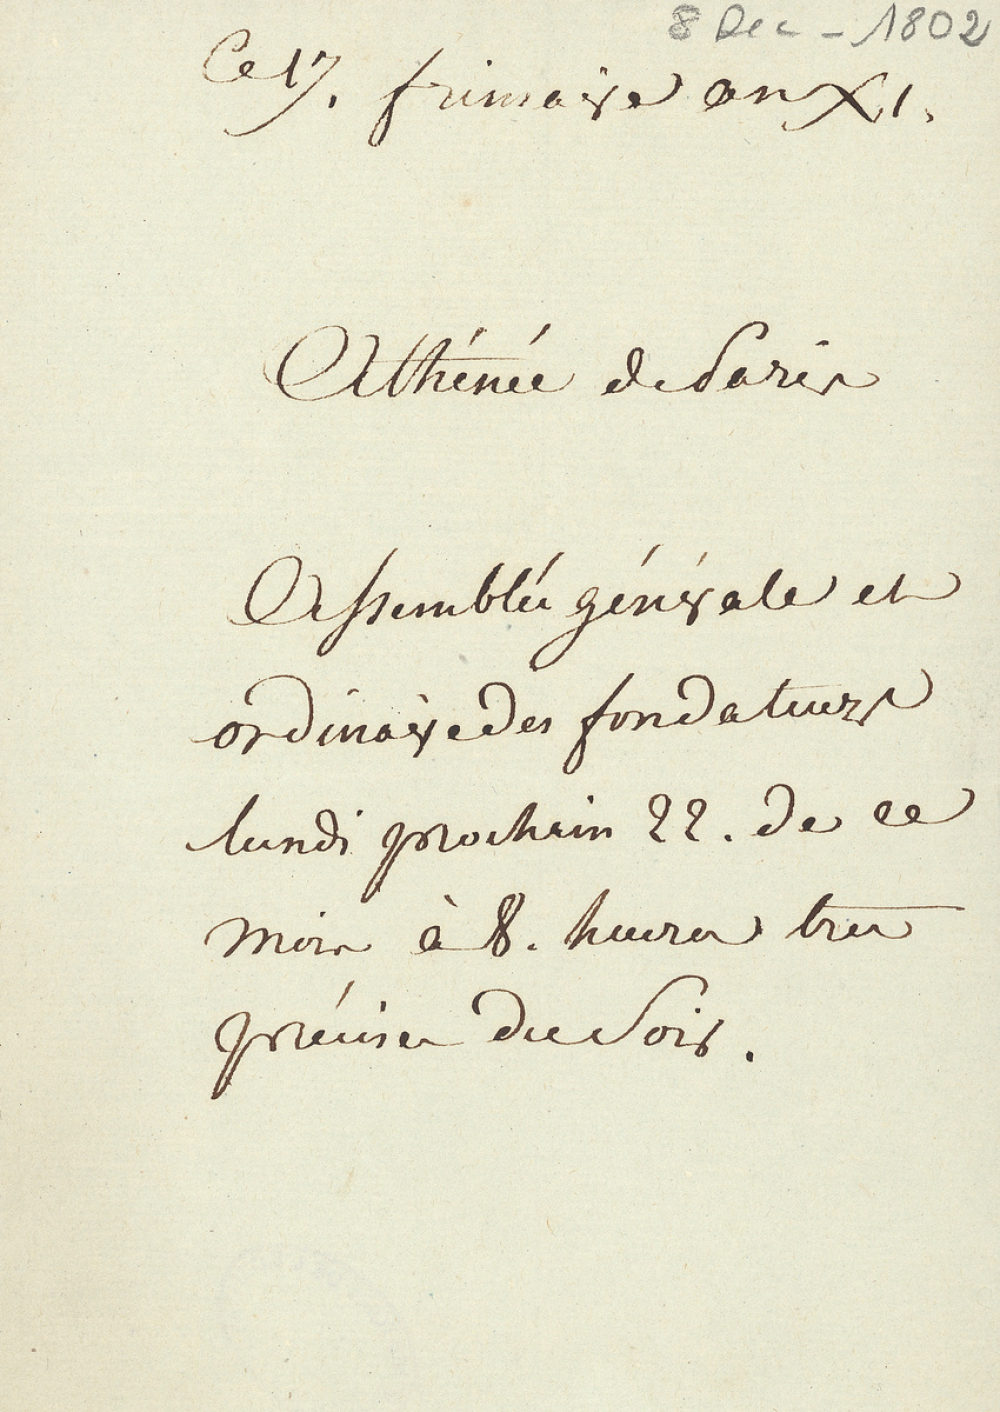 8 Dec - 1802
Ce 17. frimaire an XI.
Athénée de Paris
Assemblée générale et
ordinaire des fondateurs
lundi prochain 22. de ce
mois à 8. heures très
précises du Soir.